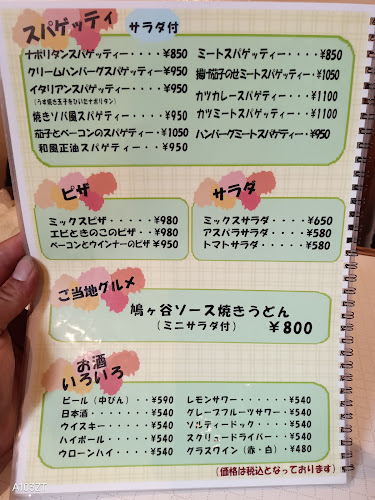 スパゲッティ サラダ付
ナポリタンスパゲッティー・・・・¥850
クリームハンバーグスパゲッティー¥950
イタリアンスパゲッティー・・・・¥950
(うす焼き玉子をひいたナポリタン)
焼きソバ風スパゲティー・・・・・¥950
茄子とベーコンのスパゲティー・・¥1050
和風正油スパゲティー・・・¥950
ミートスパゲッティー・・・・¥850
揚げ茄子のせミートスパゲティー・¥1050
カツカレースパゲティー・・・¥1100
カツミートスパゲティー・・・¥1100
ハンバーグミートスパゲティー・¥950
ピザ
ミックスピザ・・・・・・¥980
エビときのこのピザ・・・¥980
ベーコンとウインナーのピザ ¥950
サラダ
ミックスサラダ・・・・¥650
アスパラサラダ・・・・¥580
トマトサラダ・・・・・¥580
ご当地グルメ
鳩ヶ谷ソース焼きうどん
(ミニサラダ付) ¥800
お酒
いろいろ
ビール(中びん)・・・¥590
日本酒・・・・・・・・¥540
ウイスキー・・・・・・¥540
ハイボール・・・・・・¥540
ウローンハイ・・・・・¥540
レモンサワー・・・・・・・¥540
グレープフルーツサワー・・¥540
ソルティードック・・・・・¥540
スクリュードライバー・・・¥540
グラスワイン(赤・白)・・¥480
(価格は税込となっております)